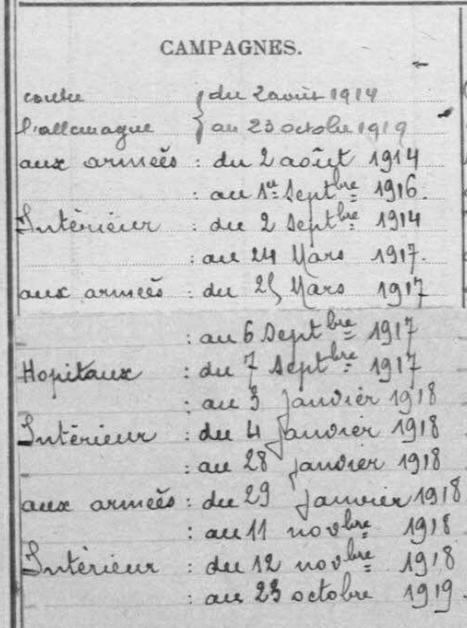 CAMPAGNES.
contre { du 2 août 1914
l'allemagne { au 23 octobre 1919
aux armées : du 2 août 1914
: au 1er Septbre 1916.
Intérieur : du 2 Septbre 1914
: au 24 Mars 1917.
aux armées : du 25 Mars 1917
: au 6 Septbre 1917
Hopitaux : du 7 Septbre 1917
: au 3 Janvier 1918
Intérieur : du 4 Janvier 1918
: au 28 Janvier 1918
aux armées : du 29 Janvier 1918
: au 11 novbre 1918
Intérieur : du 12 novbre 1918
: au 23 octobre 1919.